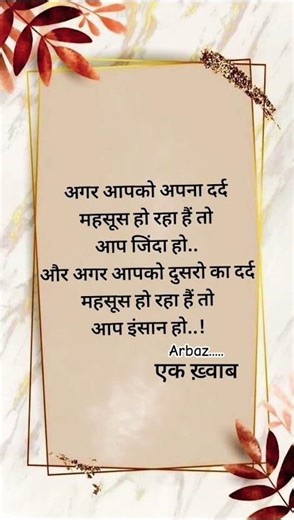 अगर आपको अपना दर्द
महसूस हो रहा हैं तो
आप जिंदा हो..
और अगर आपको दुसरो का दर्द
महसूस हो रहा हैं तो
आप इंसान हो..!
Arbaz.....
एक ख़्वाब